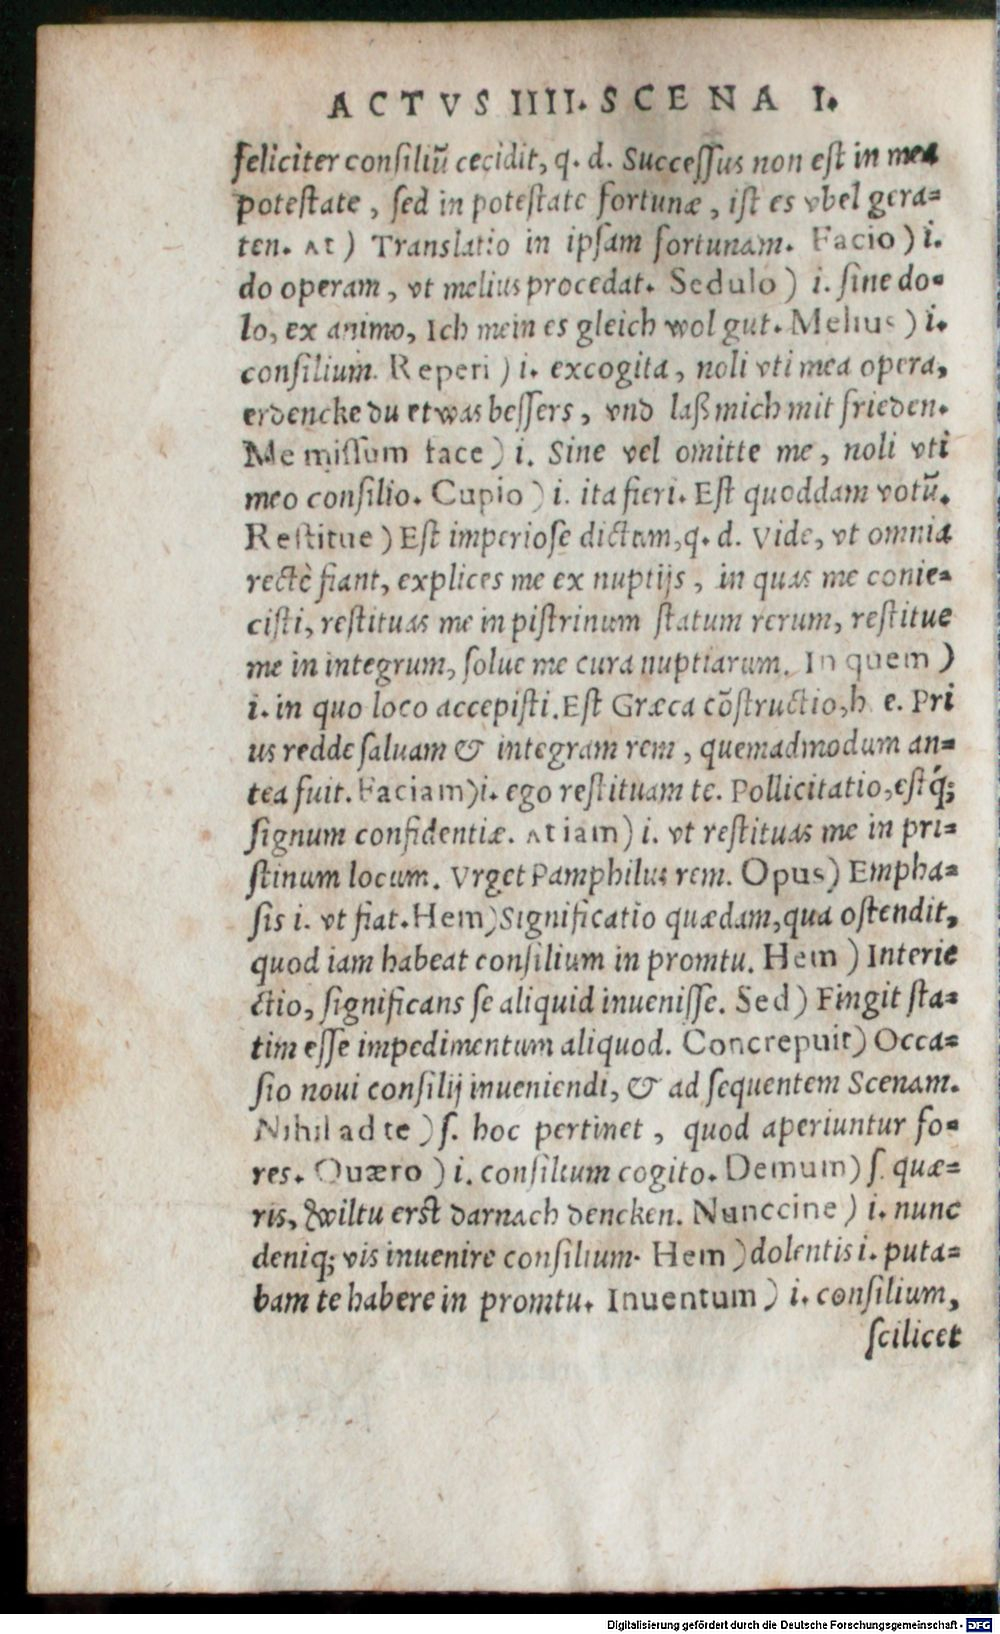 ACTVS IIII. SCENA I.
feliciter consiliũ cecidit, q. d. Successus non est in mea
potestate, sed in potestate fortunæ, ist es vbel gera-
ten. At) Translatio in ipsam fortunam. Facio) i.
do operam, vt melius procedat. Sedulo) i. sine do-
lo, ex animo, Ich mein es gleich wol gut. Melius) i.
consilium. Reperi) i. excogita, noli vti mea opera,
erdencke du etwas bessers, vnd laß mich mit frieden.
Me missum face) i. Sine vel omitte me, noli vti
meo consilio. Cupio) i. ita fieri. Est quoddam votũ.
Restitue) Est imperiose dictum, q. d. Vide, vt omnia
rectè fiant, explices me ex nuptijs, in quas me conie-
cisti, restituas me in pistrinum statum rerum, restitue
me in integrum, solue me cura nuptiarum. In quem)
i. in quo loco accepisti. Est Græca cõstructio, h. e. Pri
us redde saluam & integram rem, quemadmodum an-
tea fuit. Faciam) i. ego restituam te. Pollicitatio, estq́;
signum confidentiæ. At iam) i. vt restituas me in pri-
stinum locum. Vrget Pamphilus rem. Opus) Empha-
sis i. vt fiat. Hem) Significatio quædam, qua ostendit,
quod iam habeat consilium in promtu. Hem) Interie
ctio, significans se aliquid inuenisse. Sed) Fingit sta-
tim esse impedimentum aliquod. Concrepuit) Occa-
sio noui consilij inueniendi, & ad sequentem Scenam.
Nihil ad te) s. hoc pertinet, quod aperiuntur fo-
res. Quæro) i. consilium cogito. Demum) s. quæ-
ris, wiltu erst darnach dencken. Nunccine) i. nunc
deniq; vis inuenire consilium. Hem) dolentis i. puta-
bam te habere in promtu. Inuentum) i. consilium,
scilicet
Digitalisierung gefördert durch die Deutsche Forschungsgemeinschaft - DFG